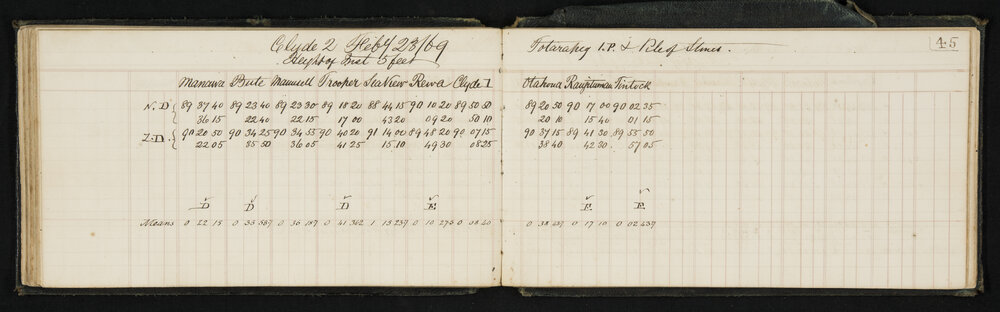 Clyde 2 Feby 23/69
Height of Inst 5 feet
Manawa Bute Maunsell Trooper Sea View Rewa Clyde 1
N.D 89 37 40 89 23 40 89 23 30 89 18 20 88 44 15 90 10 20 89 50 50
36 15 22 40 22 15 17 00 43 20 09 20 50 10
Z.D. 90 20 50 90 34 25 90 34 55 90 40 20 91 14 00 89 48 20 90 07 15
22 05 35 50 36 05 41 25 15 10 49 30 08 25
D D D E
Means 0 22 15 0 35 587 0 36 187 0 41 362 1 15 237 0 10 275 0 08 40
45
Totara Sig I.P. & Pile of Stones.
Otahoua Tintock
89 20 50 90 17 00 90 02 35
20 10 15 40 01 15
90 37 15 89 41 30 89 55 50
38 40 42 30 57 05
E E
0 38 437 0 17 10 0 02 437